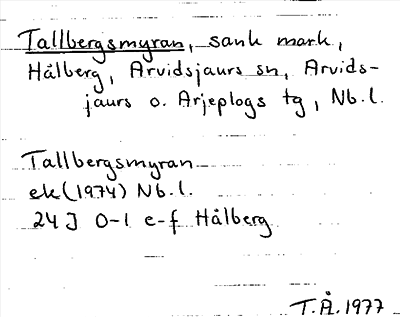 Tallbergsmyran, sank mark,
Hålberg, Arvidsjaurs sn, Arvids-
jaurs o. Arjeplogs tg, Nb.l.
Tallbergsmyran
ek(1974) Nb.l.
24J 0-1 e-f Hålberg
T.Å.1977